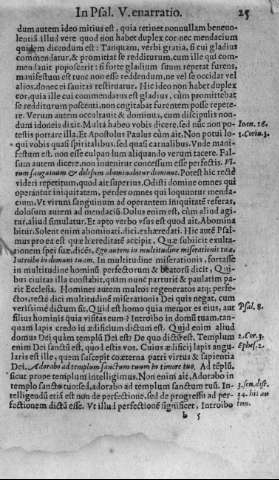 In Psal. V. enarratio. 25
dum autem ideo mitius est, quia retinet nonnullam beneuo-
lentiã illud vere quod non habet duplex cor: nec mendacium
quidem dicendum est: Tanquam, verbi gratia, si cui gladius
commendatur, & promittat se redditurum, cum ille qui com-
mendauit poposcerit: si forte gladium suum repetat furens,
manifestum est tunc non esse reddendum, ne vel se occidat vel
alios, donec ei sanitas restituatur. Hic ideo non habet duplex
cor, quia ille cui commendatus est gladius, cùm promittebat
se redditurum poscenti, non cogitabat furentem posse repete-
re. Verum autem occultauit & dominus, cum discipulis non-
dum idoneis dixit: Multa habeo vobis dicere, sed nũc non po- Ioan. 16.
testis portare illa. Et Apostolus Paulus cùm ait. Non potui lo- 1. Cori. 3.
qui vobis quasi spiritalibus, sed quasi carnalibus. Vnde mani-
festum est, non esse culpandum aliquando verum tacere. Fal-
sum autem dicere, non inuenitur concessum esse perfectis. Vi-
rum sanguinum & dolosum abominabitur dominus. Potest hîc recte
videri repetitum, quod ait superius. Odisti domine omnes qui
operantur iniquitatem, perdes omnes qui loquuntur menda-
cium. Vt virum sanguinum ad operantem iniquitatẽ referas,
dolosum autem ad mendaciũ. Dolus enim est, cùm aliud agi-
tur, aliud simulatur. Et apto verbo vsus est quod ait. Abomina
bitur. Solent enim abominati, dici, exhæredati. Hic autẽ Psal-
mus pro ea est quæ hæreditatẽ accipit. Quæ subiicit exulta-
tionem spei suæ, dicẽs, Ego autem in multitudine misericordiæ tuæ,
Introibo in domum tuam. In multitudine misericordiæ, fortasse
in multitudine hominũ perfectorum & beatorũ dicit. Qui-
bus ciuitas illa constabit, quam nunc parturit & paulatim pa-
rit Ecclesia. Homines autem multos regeneratos atq; perfe-
ctos, rectè dici multitudinẽ misericordiæ Dei quis negat, cum
verissimè dictum sit. Quid est homo quia memor es eius, aut Psal. 8.
filius hominis quia visitas eum? Introibo in domũ tuam, tan-
quam lapis credo in ædificium dictum est. Quid enim aliud
domus Dei quàm templũ Dei est? De quo dictũ est. Templum 2. Cor. 3.
enim Dei sanctũ est, quod estis vos. Cuius ædificij lapis angu- Ephes. 2.
laris est ille, quem suscepit coæterna patri virtus & sapientia
Dei. Adorabo ad templum sanctum tuum in timore tuo. Ad tẽplũ,
sicut propè templum intelligimus. Non enim ait, Adorabo in
templo sancto tuo: sed, adorabo ad templum sanctum tuũ. In-
telligendũ etiã est non de perfectione, sed de progressu ad per-
fectionem dictã esse. Vt illud perfectionẽ significet, Introibo
b 5